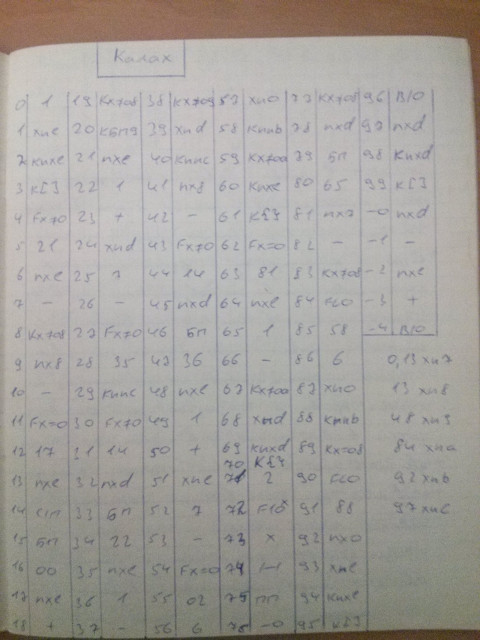 Калах
0 1 19 Кx≠08 38 Кx≠09 57 хпо 77 Кx≠08 96 В/О
1 хпе 20 КБП9 39 хпd 58 Кппb 78 пxd 97 пxd
2 Кпхе 21 пхе 40 Кппс 59 Кx≠0а 79 БП 98 Кпхd
3 К[]3 22 1 41 пх8 60 Кпхе 80 65 99 К[]3
4 Fx≠0 23 + 42 - 61 К[]4 81 пх7 -0 пxd
5 21 24 хпd 43 Fx≠0 62 Fx=0 82 - -1 -
6 пхе 25 7 44 14 63 81 83 Кx≠08 -2 пхе
7 - 26 - 45 пxd 64 пхе 84 F⟲0 -3 +
8 Кx≠08 27 Fx≠0 46 БП 65 1 85 58 -4 В/О
9 пх8 28 35 47 36 66 - 86 6 0,13 хп7
10 - 29 Кппс 48 пхе 67 Кx≠0а 87 хпо 13 хп8
11 Fx=0 30 Fx≠0 49 1 68 хпd 88 Кппb 48 хп9
12 17 31 14 50 + 69 Кпхd 89 Кx=08 84 хпа
70 К[]4
13 пхе 32 пxd 51 хпе 71 2 90 F⟲0 92 хпb
14 С/П 33 БП 52 7 72 F10ˣ 91 88 97 хпс
15 БП 34 22 53 - 73 х 92 пхо
16 00 35 пхе 54 Fx=0 74 /-/ 93 хпе
17 пхе 36 1 55 02 75 ПП 94 Кпхе
18 + 37 - 56 6 76 -0 95 К[]3